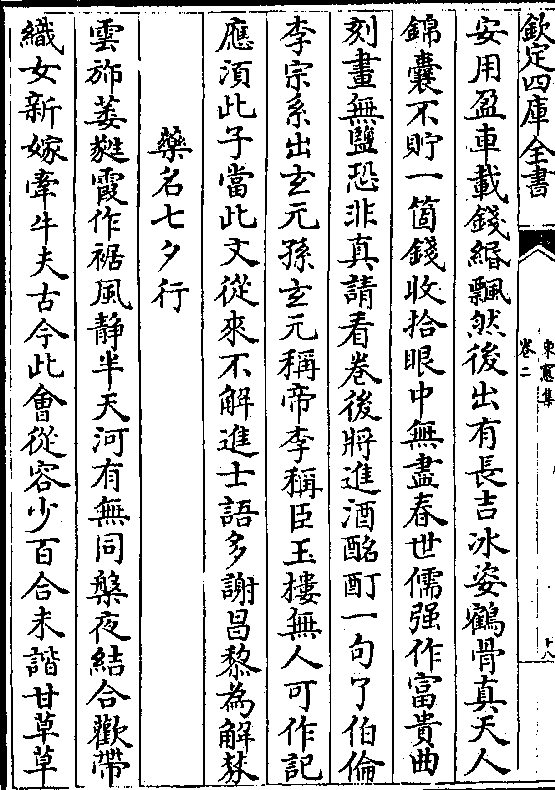 欽定四庫全書
東窻集
卷二
十八
安用盈車載錢緡飄然後出有長吉冰姿鶴骨真天人
錦囊不貯一箇錢收拾眼中無盡春世儒强作富貴曲
刻畫無鹽恐非真請看卷後將進酒酩酊一句了伯倫
李宗系出玄元孫玄元稱帝李稱臣玉樓無人可作記
應須此子當此文從來不解進士語多謝昌黎為解紛
藥名七夕行
雲斾萎蕤霞作裾風静半天河有無同槃夜結合歡帶
織女新嫁牽牛夫古今此會從容少百合未諧甘草草